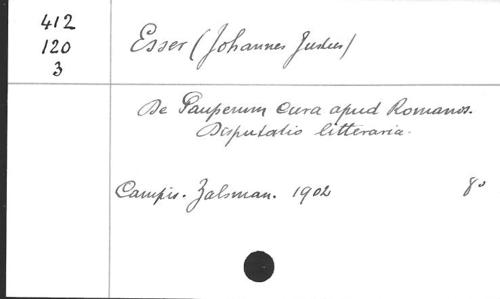 412
120
3
Esser (Johannes Justus)
De Pauperum Cura apud Romanos.
Disputatio litteraria.
Campis. Zalsman. 1902 8°